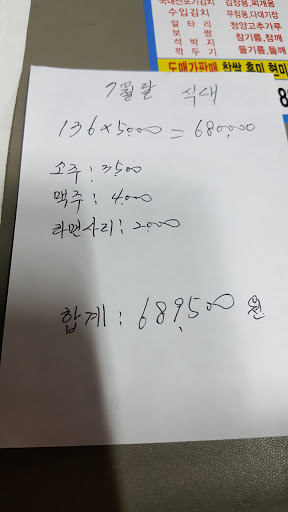 국내산포기김치 김장용,찌개용
수입김치 무침용,다대기장
알타리 청양고추가루
보쌈 참기름,참깨
석박지 들기름,들깨
깍두기
도매가판매 찹쌀 흑미 현미
8
7월달 식대
136×5000=680,000
소주: 3500
맥주: 4000
라면사리: 2000
합계: 689,500 원